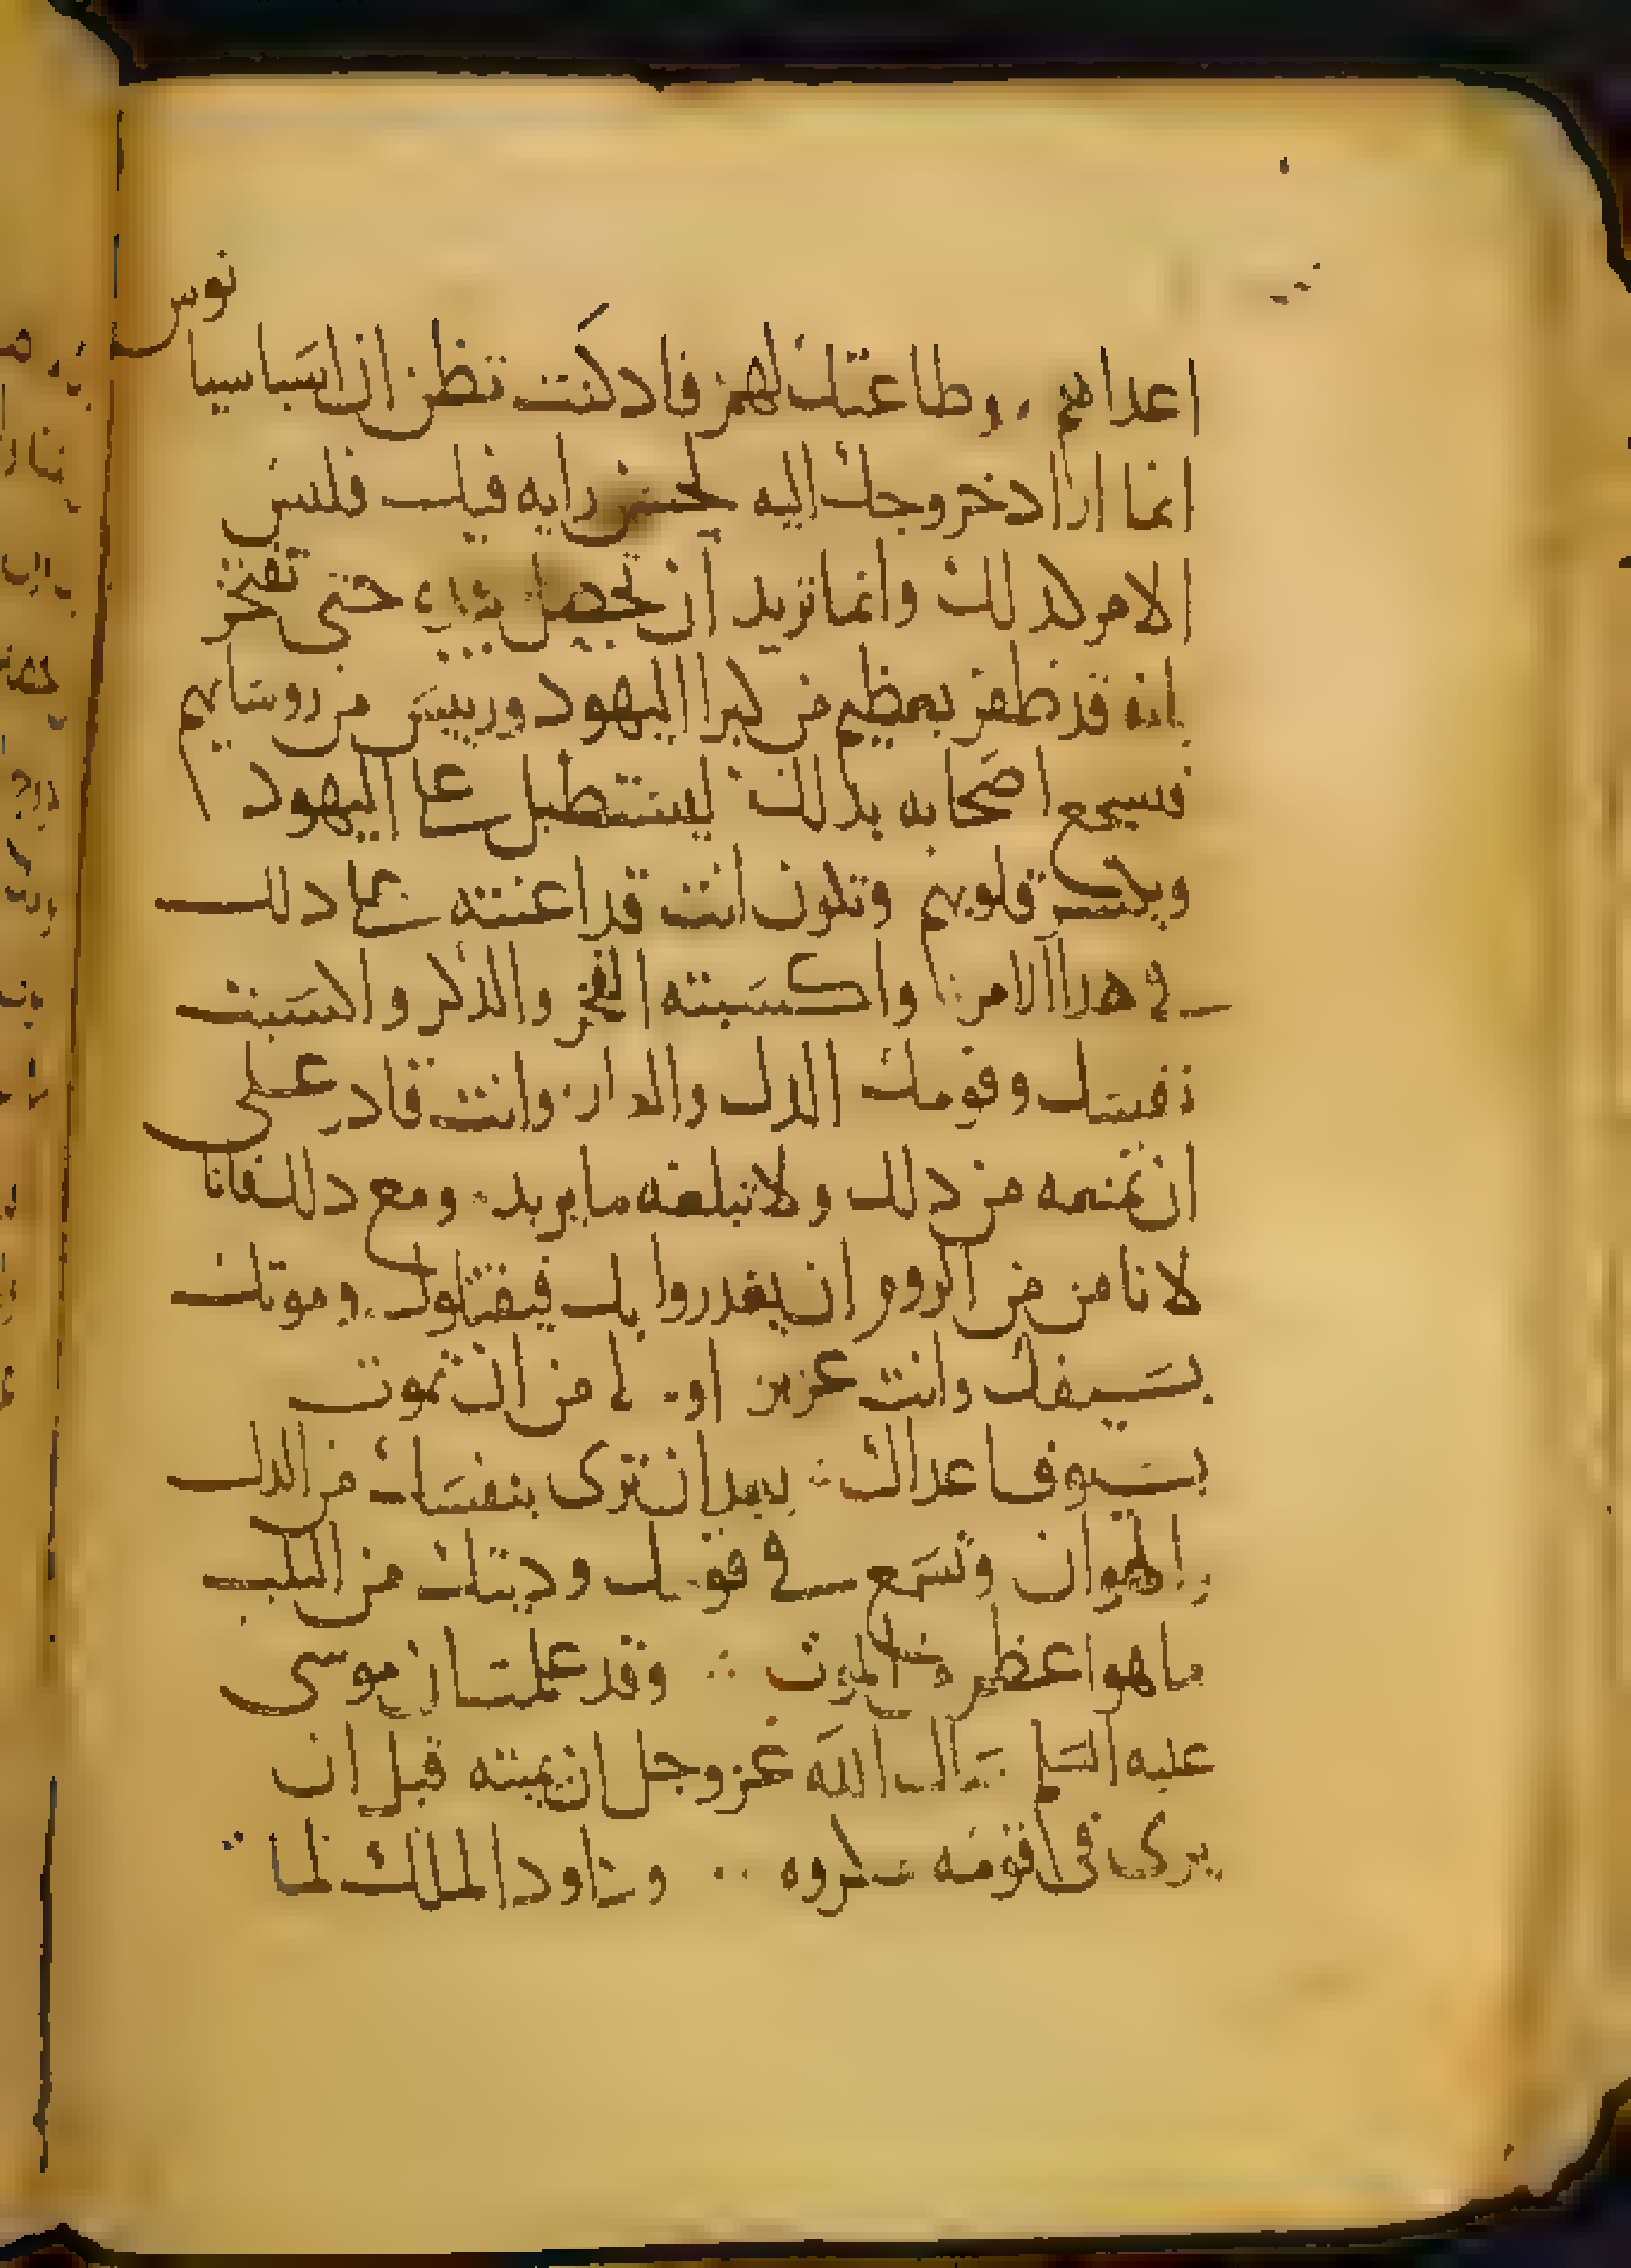 نوس
اعدايهم . وطاعتك لهم فاد كنت تظن ان اسباسيا
انما اراد خروجك اليه لحسن رايه فيك فليس
الامر كدلك وانما تريد ان تحصل حتى تفتخر
بانه قد ظفر بعظيم من كبرا اليهود ورييس من روسايهم
فسيجع اصحابه بدلك ليستطيل على اليهود
ويكسر قلوبهم وتكون انت قد اعنته على دلك
في هدا الامر واكسبته الفخر والذكر واكسبت
نفسك وقومك الدل والعار وانت قادر على
ان تمنعه من دلك ولا تبلغه ما يريد . ومع دلك فانا
لا نامن من الروم ان يغدروا بك فيقتلوك . وموتك
بسيفك وانت عزيز اولى من ان تموت
بسيوف اعداك ∴ بعد ان ترى بنفسك من الدل
والهوان وتسمع في قومك ودينك من السب
ما هو اعظم من الموت ∴ وقد علمت ان موسى
عليه السلم سال الله عز وجل ان يميته قبل ان
يرى في قومه مكروه .. وداود الملك لما